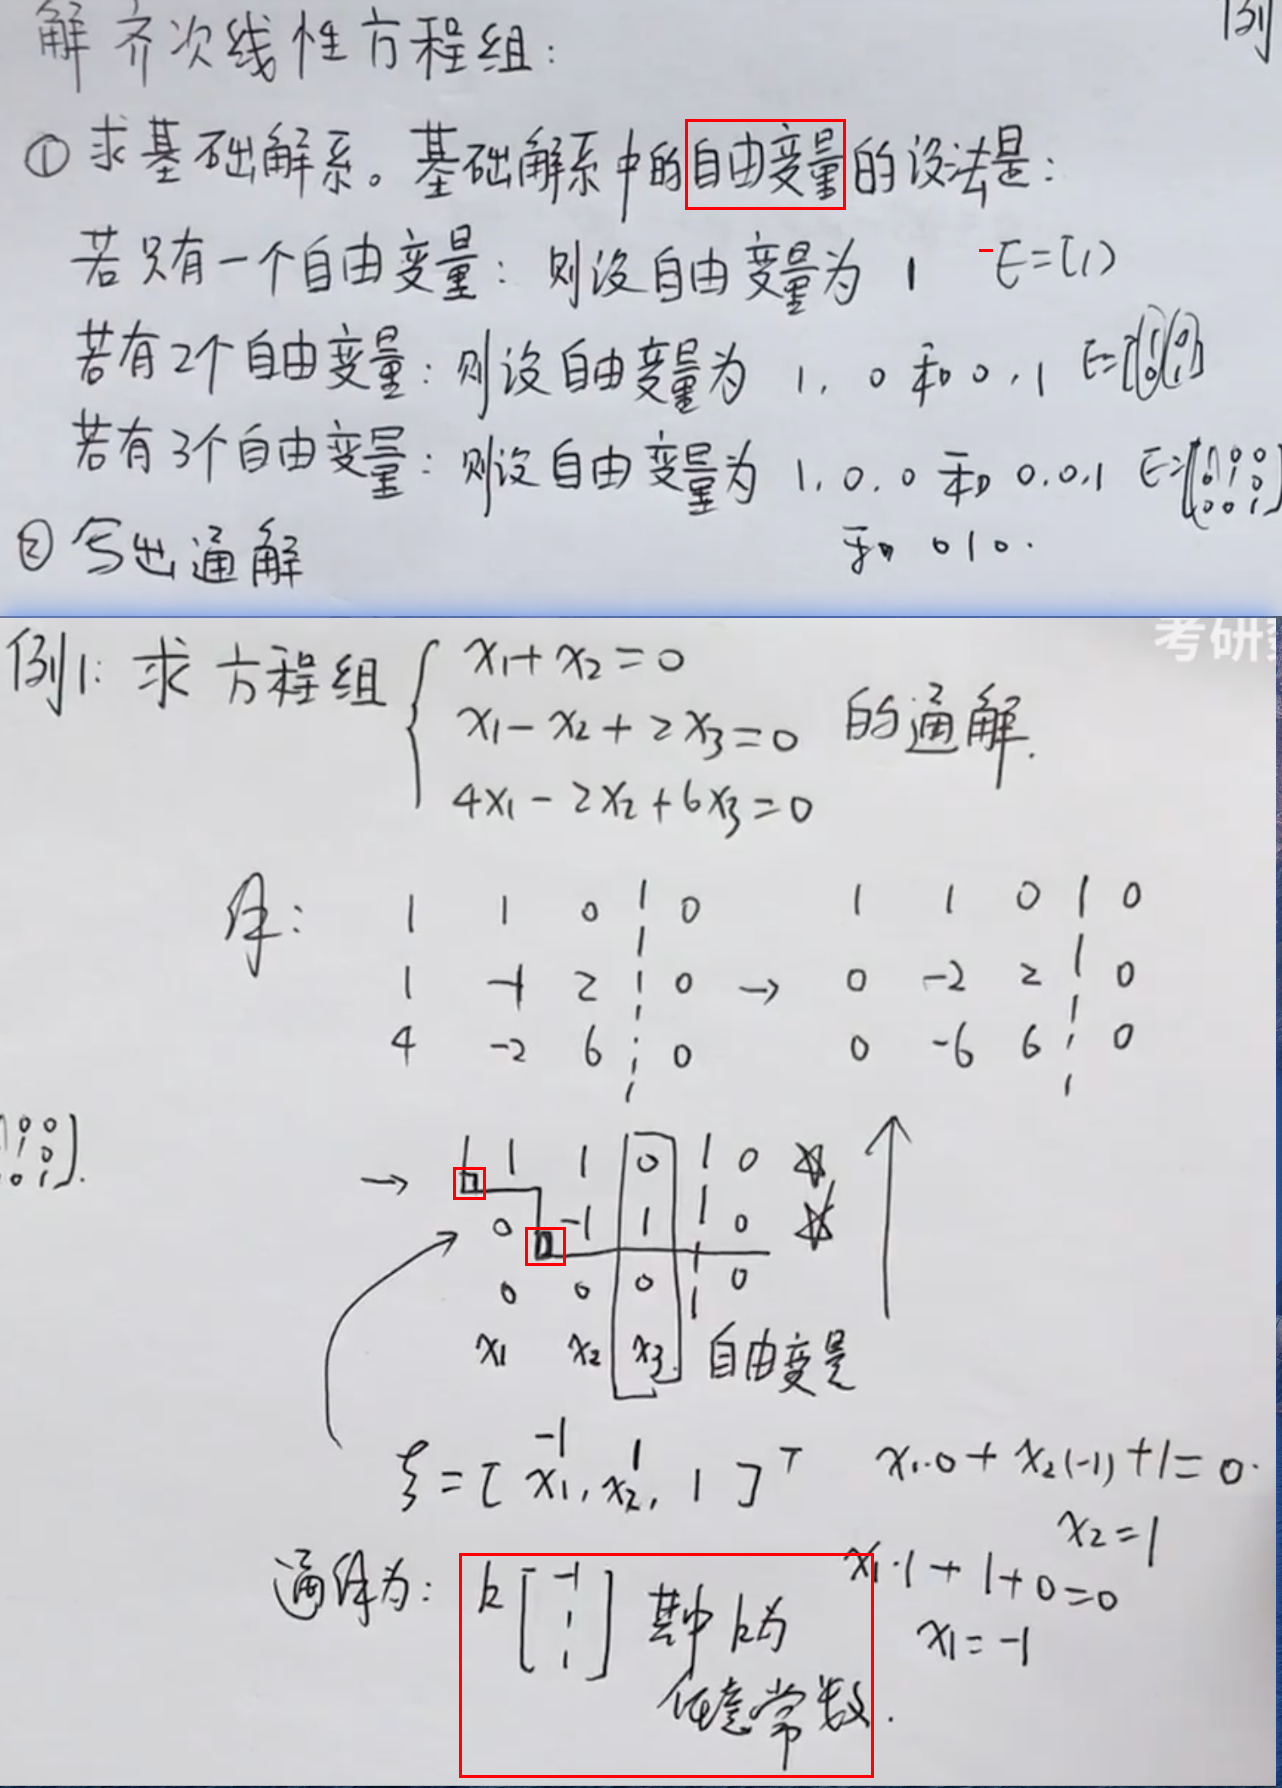 解齐次线性方程组: 例
① 求基础解系。基础解系中的自由变量的设法是:
若只有一个自由变量: 则设自由变量为 1 E=(1)
若有2个自由变量: 则设自由变量为 1, 0 和 0, 1 E=[(1 0)(0 1)]
若有3个自由变量: 则设自由变量为 1, 0, 0 和 0, 0, 1 E=
1 0 0
0 1 0
0 0 1
和 0 1 0.
② 写出通解
考研
例1: 求方程组
x₁+x₂=0
x₁-x₂+2x₃=0 的通解.
4x₁-2x₂+6x₃=0
解: 1 1 0 0 1 1 0 0
1 -1 2 0 → 0 -2 2 0
4 -2 6 0 0 -6 6 0
0 0
1 0
0 1
→ 1 1 0 0 ☆
0 -1 1 0 ☆
0 0 0 0
x₁ x₂ x₃ 自由变量
-1 1
ξ=[x₁, x₂, 1]ᵀ x₁·0+x₂(-1)+1=0.
x₂=1
x₁·1+1+0=0
x₁=-1
通解为: k
-1
1
1
其中k为
任意常数.